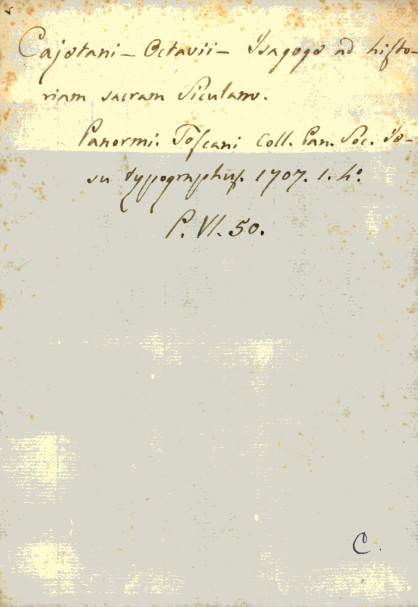 Cajetani - Octavii - Isagoge ad histo-
riam sacram Siculam.
Panormi. Toscani Coll. Pan. Soc. Je-
su typographus. 1707. 1. 4°
P. VI. 50.
C.